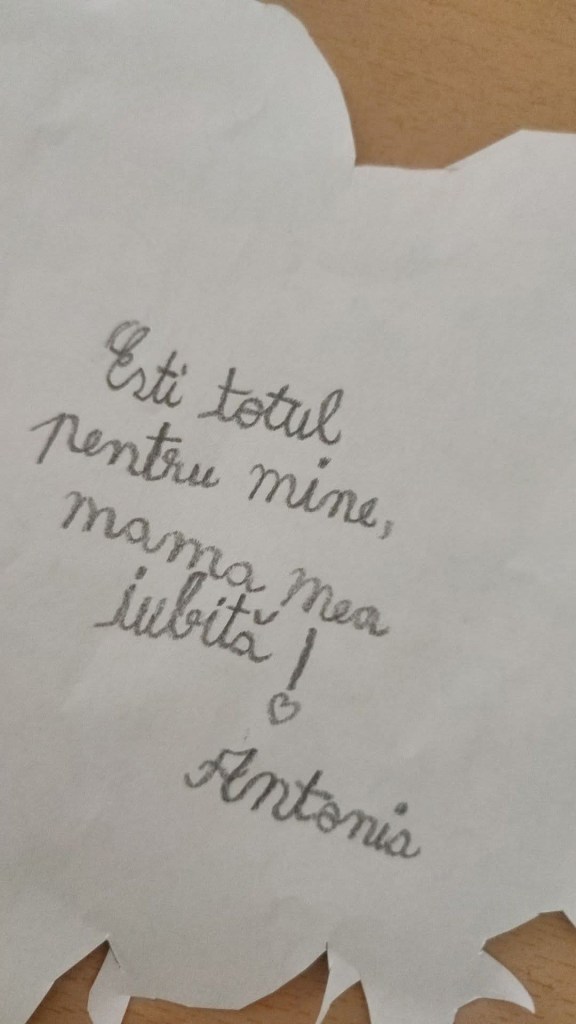 Esti totul
pentru mine,
mama mea
iubită!
Antonia